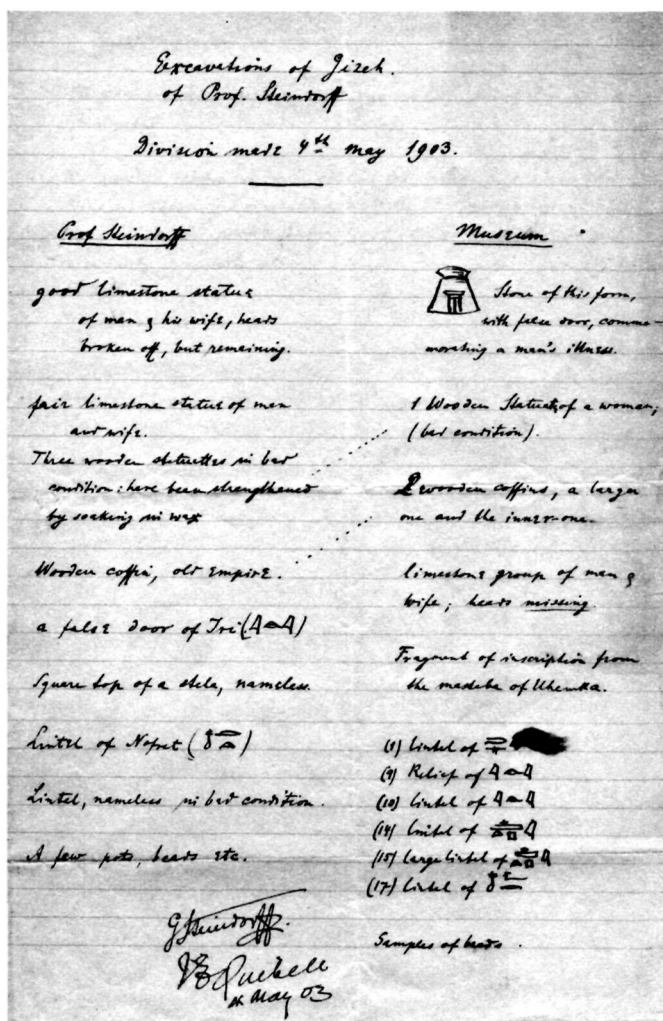 Excavations of Gizeh.
of Prof. Steindorff
Division made 4th May 1903.
Prof Steindorff
good limestone statue
of man & his wife, heads
broken off, but remaining.
fair limestone statue of man
and wife.
Three wooden statuettes in bad
condition: have been strengthened
by soaking in wax
Wooden coffin, old Empire.
a false door of Iri (𓇋𓂋𓇋)
Square top of a stela, nameless.
Lintel of Nofret (𓄤𓂋𓏏)
Lintel, nameless in bad condition.
A few pots, beads etc.
Museum
Stone of this form,
with false door, comme-
morating a man's illness.
1 Wooden Statuette of a woman;
(bad condition).
2 wooden coffins, a larger
one and the inner-one.
limestone group of man &
wife; heads missing.
Fragment of inscription from
the mastaba of Uhemka.
lintel of
(9) Relief of 𓇋𓂋𓇋
(10) lintel of 𓇋𓂋𓇋
(14) lintel of
(15) large lintel of
(17) lintel of
Samples of beads.
G Steindorff.
JE Quibell
May 03